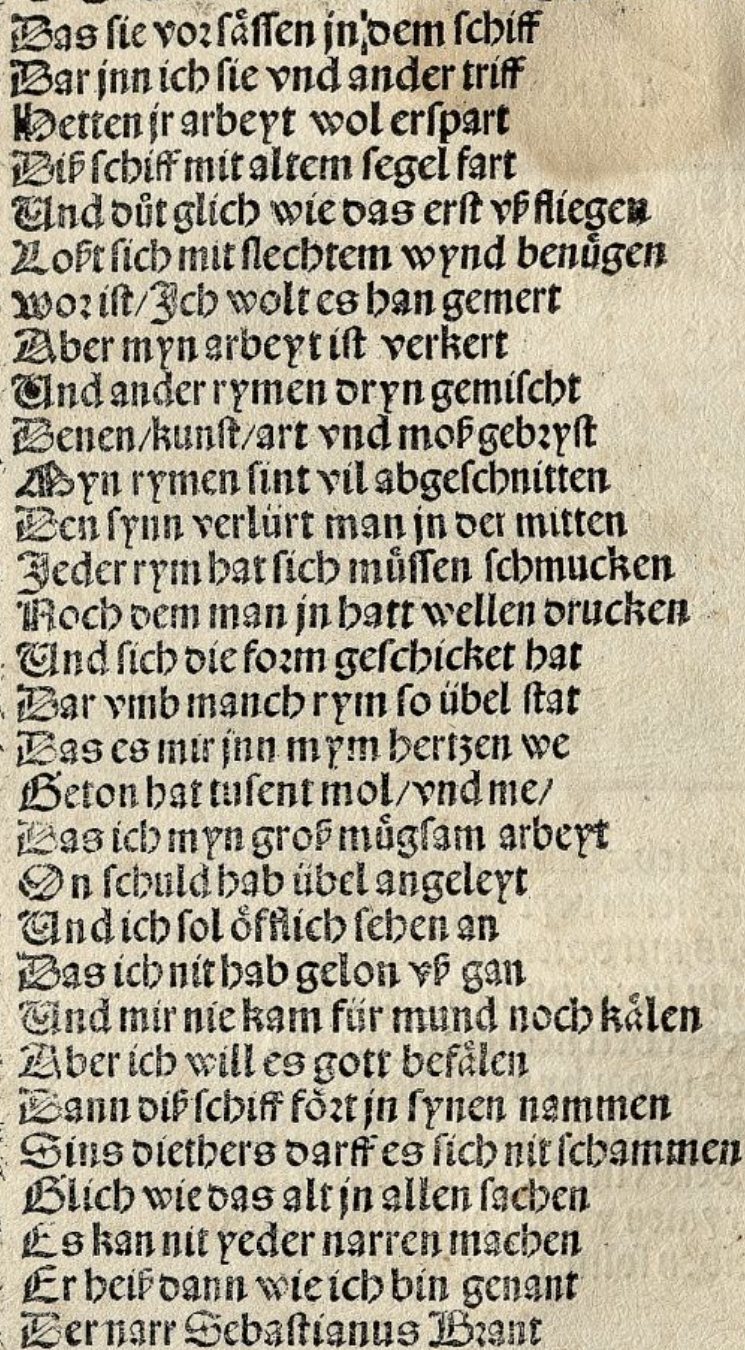 Das sie vor såssen jn dem schiff
Dar jnn ich sie vnd ander triff
Hetten jr arbeyt wol erspart
Diß schiff mit altem segel fart
Und důt glich wie das erst vß fliegen
Loßt sich mit slechtem wynd benůgen
wor ist/Ich wolt es han gemert
Aber myn arbeyt ist verkert
Und ander rymen dryn gemischt
Denen/kunst/art vnd moß gebryst
Myn rymen sint vil abgeschnitten
Den synn verlürt man jn der mitten
Jeder rym hat sich můssen schmucken
Noch dem man jn hatt wellen drucken
Und sich die form geschicket hat
Dar vmb manch rym so übel stat
Das es mir jnn mym hertzen we
Geton hat tusent mol/vnd me/
Das ich myn groß můgsam arbeyt
On schuld hab übel angeleyt
Und ich sol öfflich sehen an
Das ich nit hab gelon vß gan
Und mir nie kam für mund noch kålen
Aber ich will es gott befålen
Dann diß schiff fört jn synen nammen
Sins diethers darff es sich nit schammen
Glich wie das alt jn allen sachen
Es kan nit yeder narren machen
Er heiß dann wie ich bin genant
Der narr Sebastianus Brant